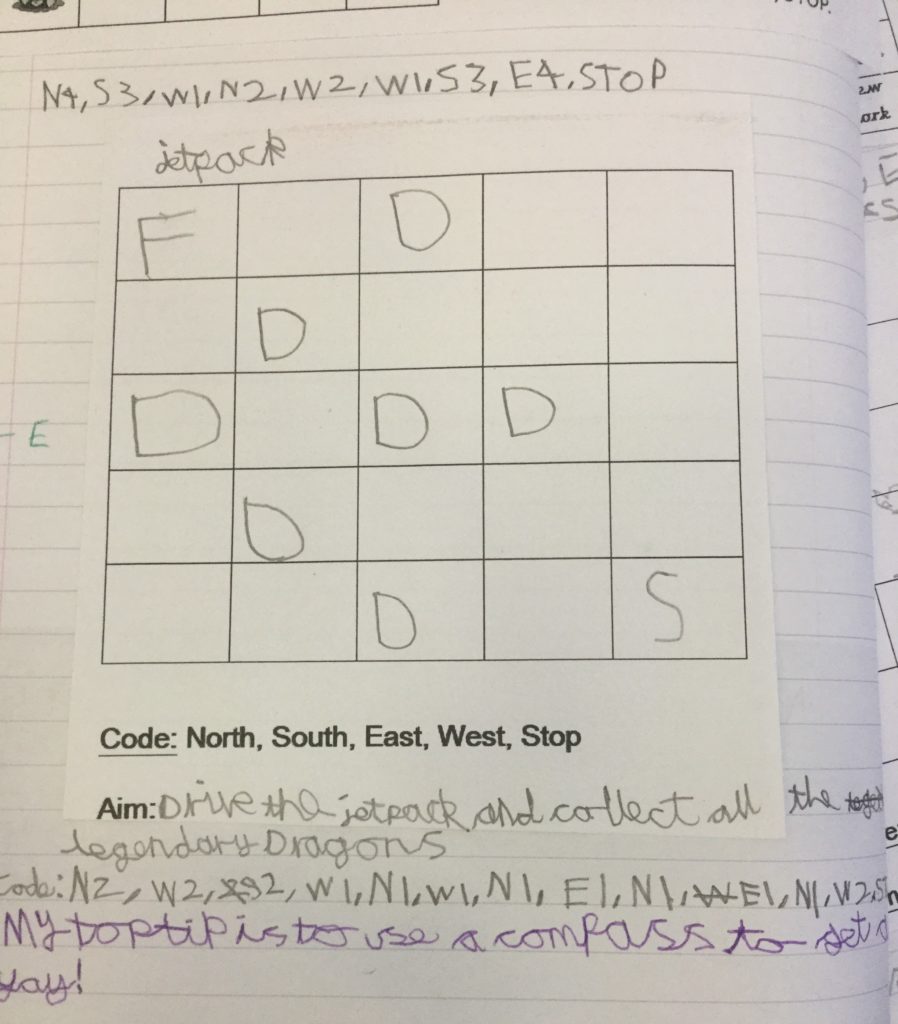 N4, S3, W1, N2, W2, W1, S3, E4, STOP
jetpack
F D
D
D D D
E
D
D S
Code: North, South, East, West, Stop
Aim: Drive the jetpack and collect all the
legendary Dragons
Code: N2, W2, S2, W1, N1, W1, N1, E1, N1, E1, N1, W2, S
My top tip is to use a compass to